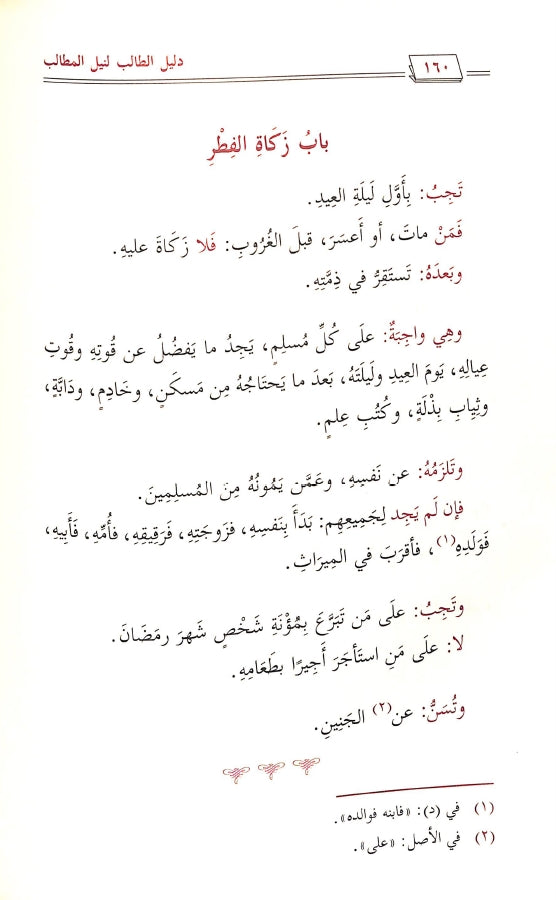 دليل الطالب لنيل المطالب
١٦٠
بابُ زَكَاةِ الفِطْرِ
تَجِبُ: بِأَوَّلِ لَيلَةِ العِيدِ.
فَمَنْ ماتَ، أو أَعسَرَ، قبلَ الغُرُوبِ: فَلا زَكَاةَ عليهِ.
وبَعدَهُ: تَستَقِرُّ في ذِمَّتِهِ.
وهِي واجِبَةٌ: علَى كُلِّ مُسلِمٍ، يَجِدُ ما يَفضُلُ عن قُوتِهِ وقُوتِ
عِيالِهِ، يَومَ العِيدِ ولَيلَتَهُ، بَعدَ ما يَحتَاجُهُ مِن مَسكَنٍ، وخَادِمٍ، ودَابَّةٍ،
وثِيابِ بِذْلَةٍ، وكُتُبِ عِلمٍ.
وتَلزَمُهُ: عن نَفسِهِ، وعَمَّن يَمُونُهُ مِنَ المُسلِمِينَ.
فإن لَم يَجِد لِجَمِيعِهِم: بَدَأَ بِنَفسِهِ، فزَوجَتِهِ، فَرَقِيقِهِ، فأُمِّهِ، فَأَبِيهِ،
فَوَلَدِهِ(١)، فأقرَبَ في المِيرَاثِ.
وتَجِبُ: علَى مَن تَبَرَّعَ بِمُؤْنَةِ شَخْصٍ شَهرَ رمَضَانَ.
لا: علَى مَنِ استَأجَرَ أَجِيرًا بطَعَامِهِ.
وتُسَنُّ: عن(٢) الجَنِينِ.
(١) في (د): «فابنه فوالده».
(٢) في الأصل: «على».